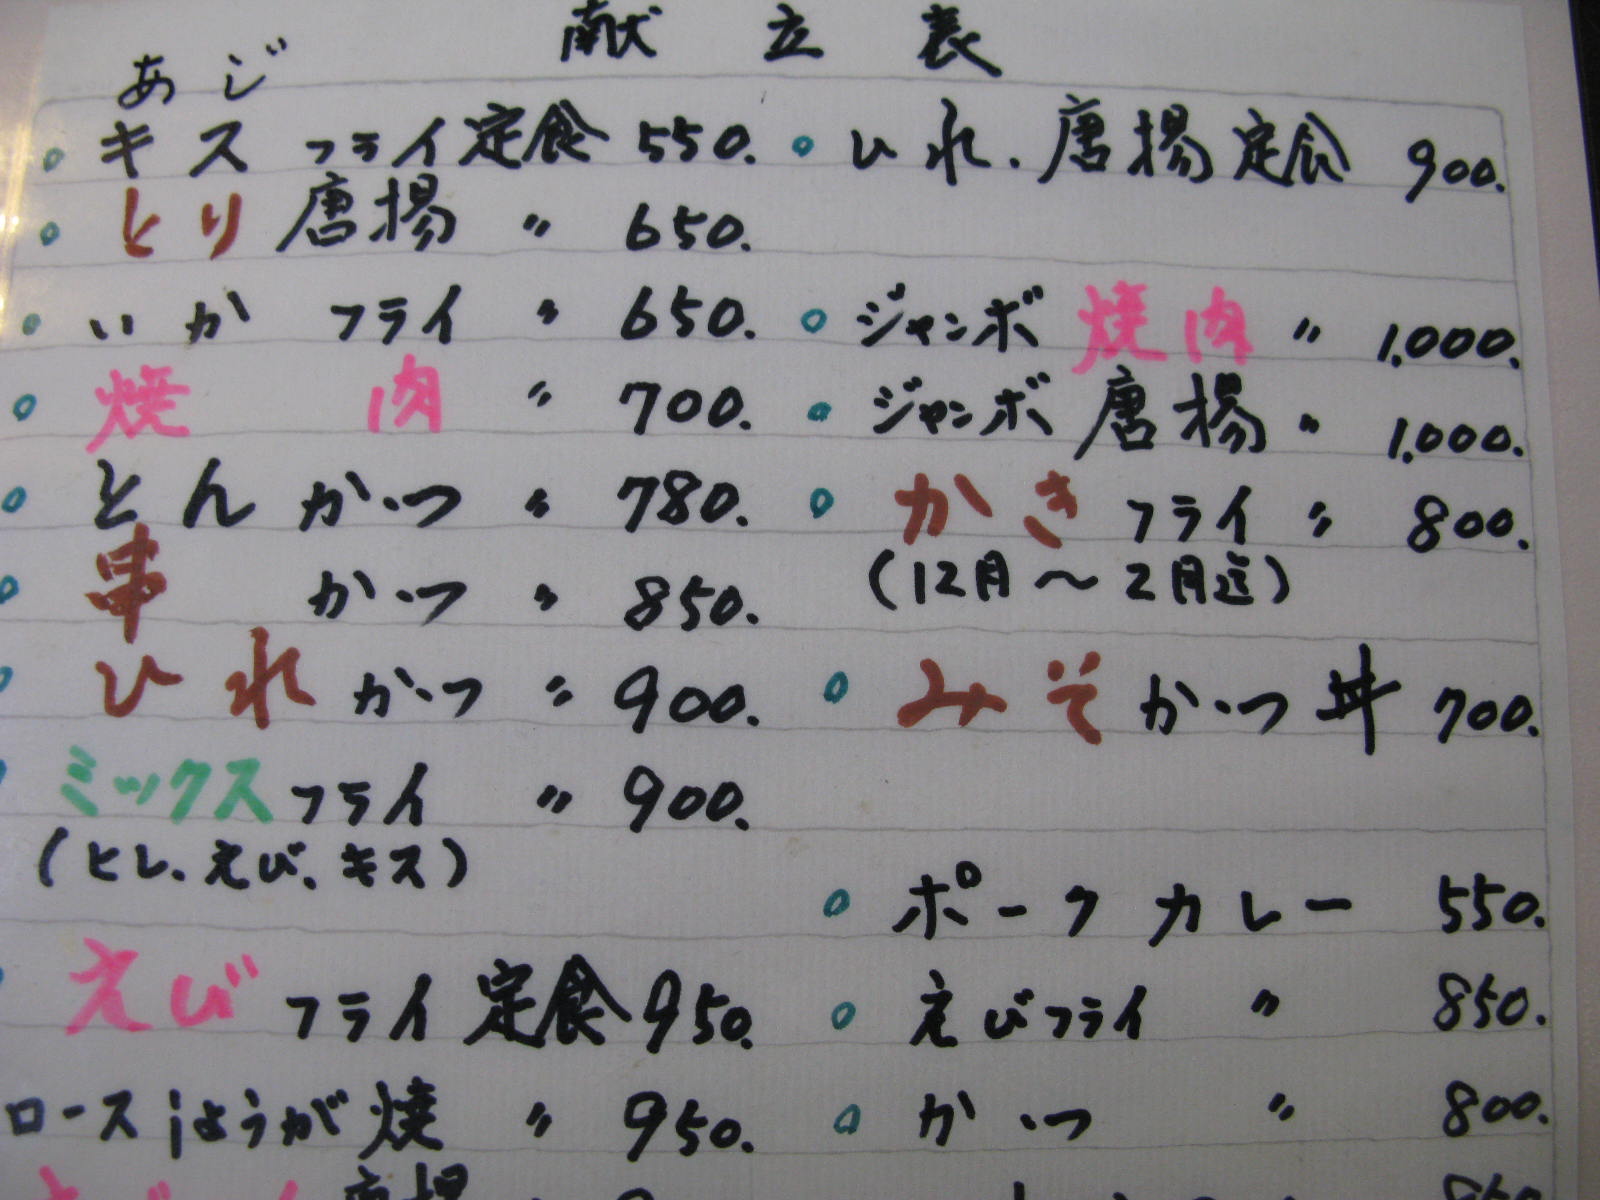 献立表
あじ
キスフライ定食 550.
とり唐揚 〃 650.
いかフライ 〃 650.
焼肉 〃 700.
とんかつ 〃 780.
串かつ 〃 850.
ひれかつ 〃 900.
ミックスフライ 〃 900.
(とり、えび、キス)
えびフライ定食 950.
ロースしょうが焼 〃 950.
唐揚
ひれ.唐揚定食 900.
ジャンボ焼肉 〃 1,000.
ジャンボ唐揚 〃 1,000.
かきフライ 〃 800.
(12月〜2月迄)
みそかつ丼 700.
ポークカレー 550.
えびフライ 〃 850.
かつ 〃 800.